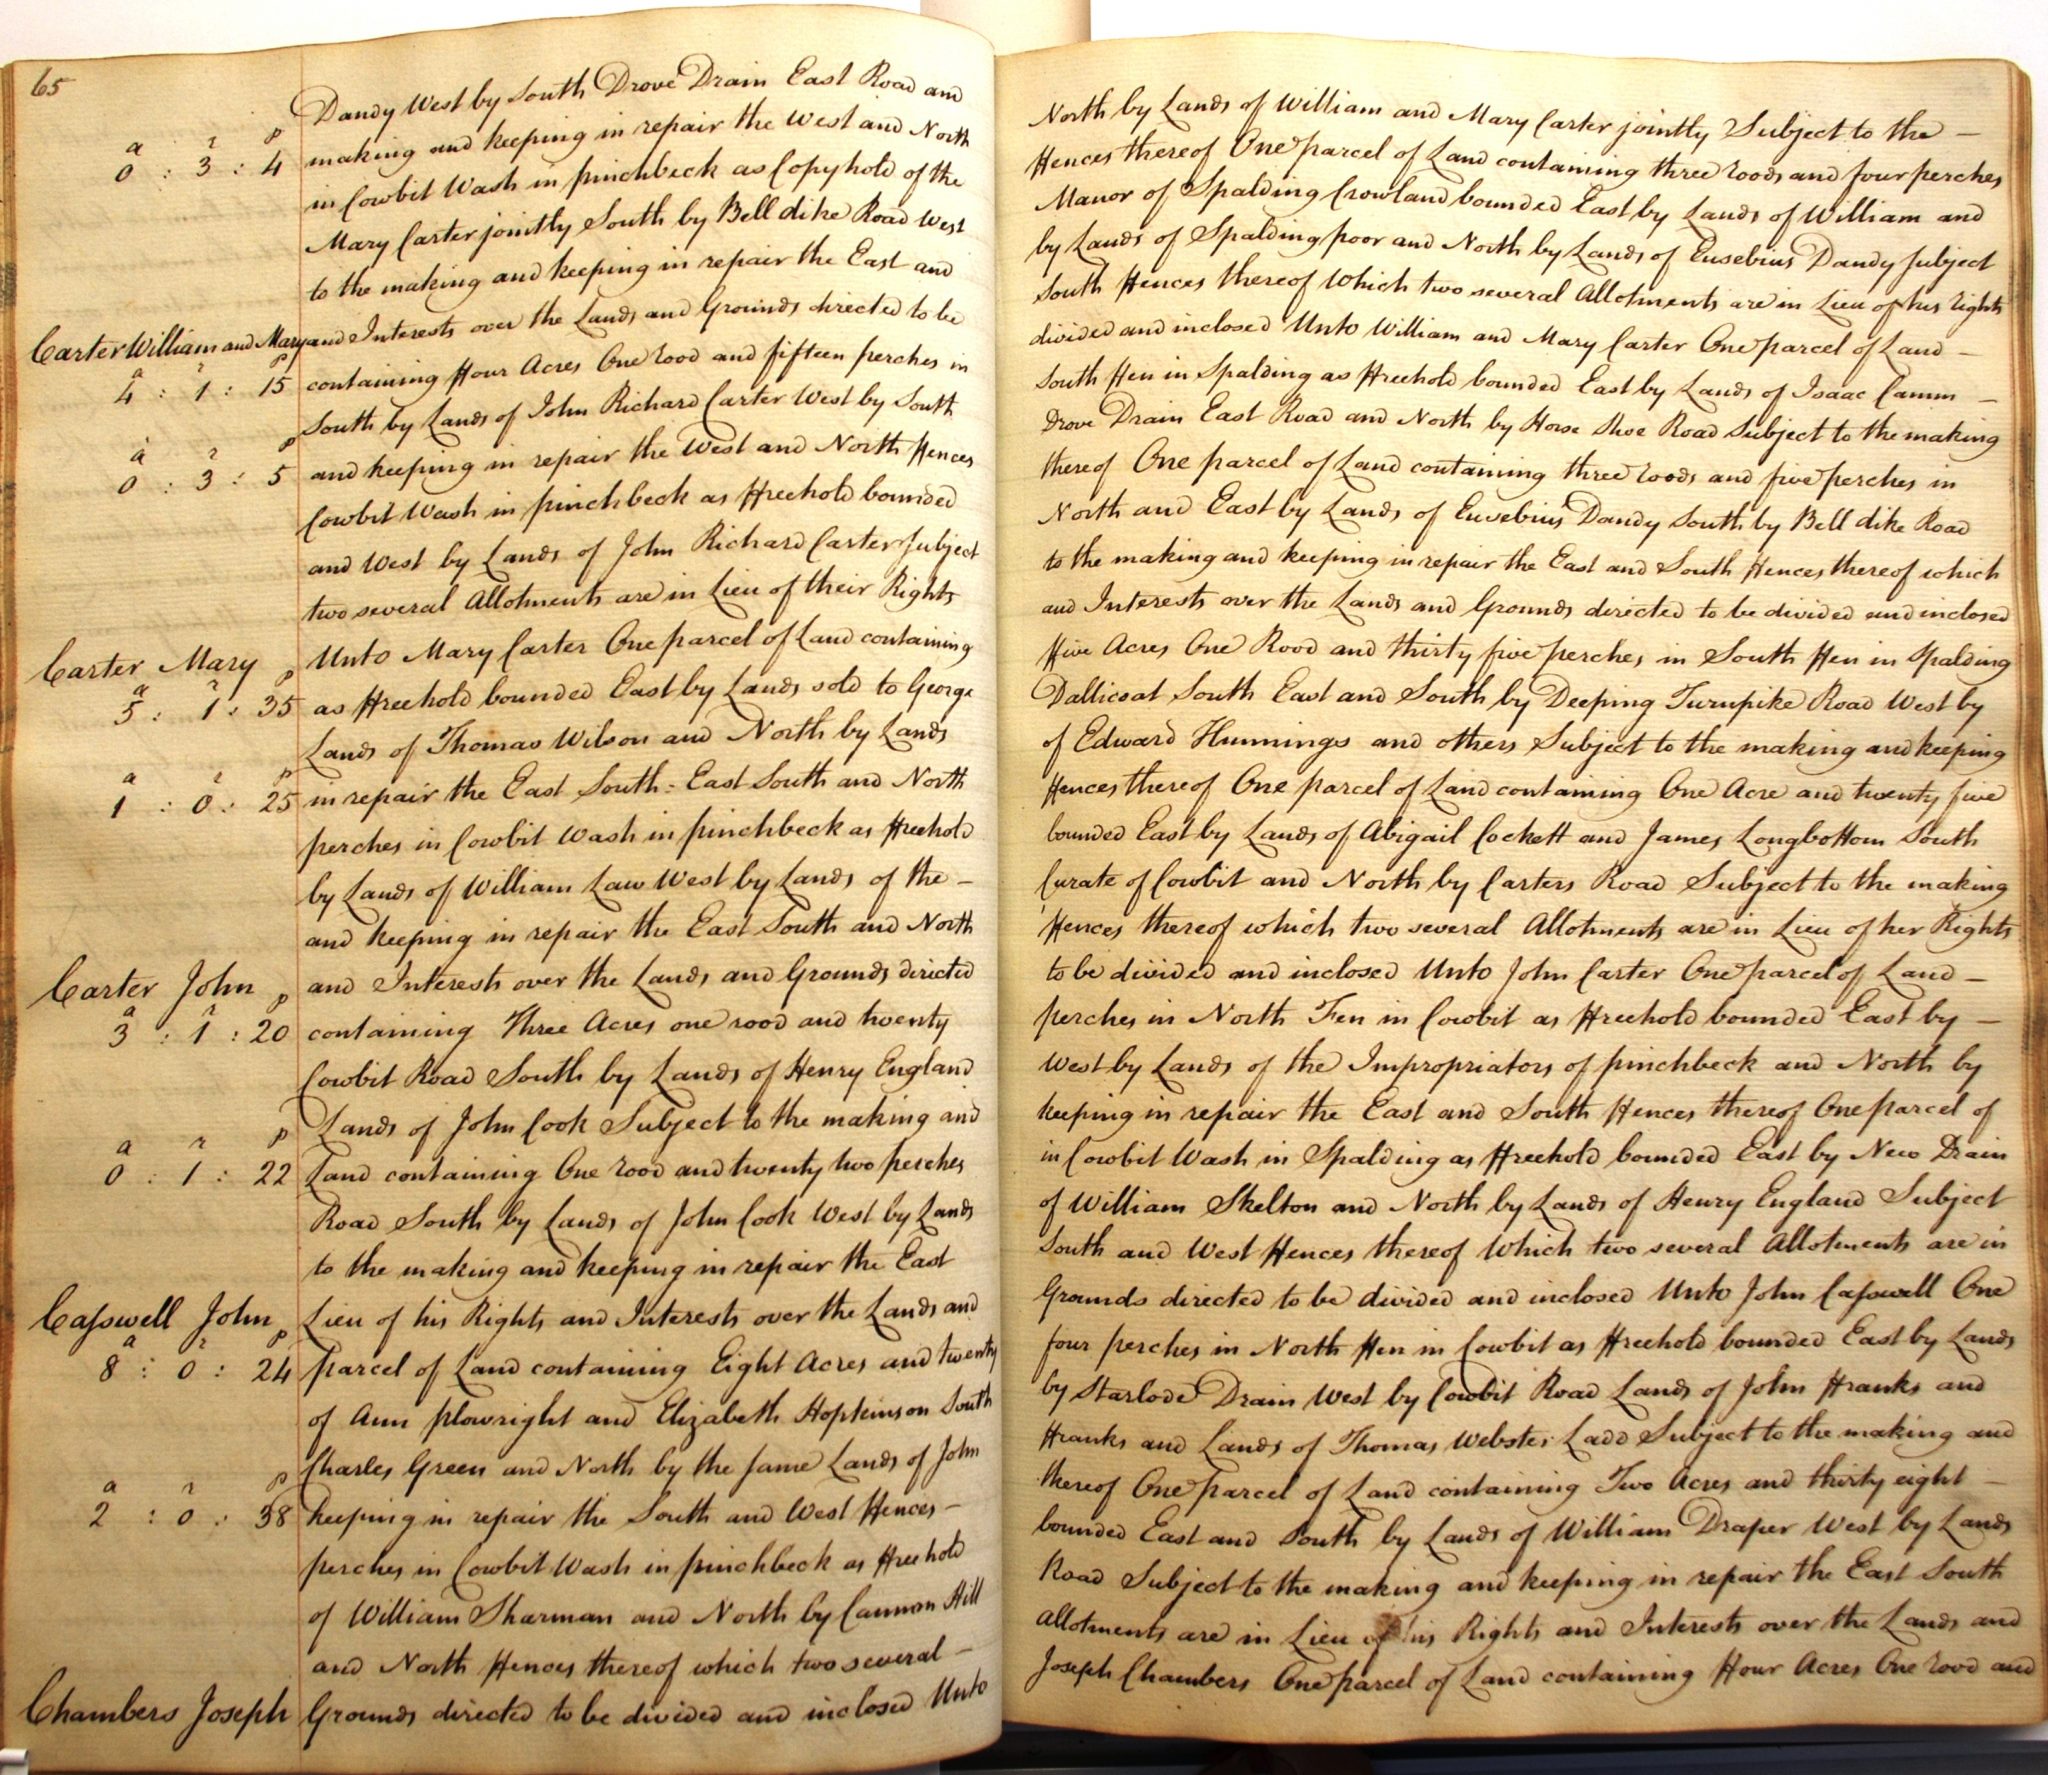 65
Dandy West by South Drove Drain East Road and North by Lands of William and Mary Carter jointly Subject to the —
a r p
0 : 3 : 4 making and keeping in repair the West and North Fences thereof One parcel of Land containing three roods and four perches
in Cowbit Wash in pinchbeck as Copyhold of the Manor of Spalding Crowland bounded East by Lands of William and
Mary Carter jointly South by Bell dike Road West by Lands of Spalding poor and North by Lands of Eusebius Dandy Subject
to the making and keeping in repair the East and South Fences thereof Which two several Allotments are in Lieu of his Rights
Carter William and Mary and Interests over the Lands and Grounds directed to be divided and inclosed Unto William and Mary Carter One parcel of Land —
a r p
4 : 1 : 15 containing Four Acres One rood and fifteen perches in South Fen in Spalding as Freehold bounded East by Lands of Isaac Camm —
South by Lands of John Richard Carter West by South Drove Drain East Road and North by Horse Shoe Road Subject to the making
a r p
0 : 3 : 5 and keeping in repair the West and North Fences thereof One parcel of Land containing three roods and five perches in
Cowbit Wash in pinchbeck as Freehold bounded North and East by Lands of Eusebius Dandy South by Bell dike Road
and West by Lands of John Richard Carter Subject to the making and keeping in repair the East and South Fences thereof which
two several Allotments are in Lieu of their Rights and Interests over the Lands and Grounds directed to be divided and inclosed
Carter Mary Unto Mary Carter One parcel of Land containing Five Acres One Rood and thirty five perches in South Fen in Spalding
a r p
5 : 1 : 35 as Freehold bounded East by Lands sold to George Dallicoat South East and South by Deeping Turnpike Road West by
Lands of Thomas Wilson and North by Lands of Edward Hunnings and others Subject to the making and keeping
a r p
1 : 0 : 25 in repair the East South-East South and North Fences thereof One parcel of Land containing One Acre and twenty five
perches in Cowbit Wash in pinchbeck as Freehold bounded East by Lands of Abigail Cockett and James Longbottom South
by Lands of William Law West by Lands of the — Curate of Cowbit and North by Carters Road Subject to the making
and keeping in repair the East South and North Fences thereof which two several Allotments are in Lieu of her Rights
Carter John and Interests over the Lands and Grounds directed to be divided and inclosed Unto John Carter One parcel of Land —
a r p
3 : 1 : 20 containing Three Acres one rood and twenty perches in North Fen in Cowbit as Freehold bounded East by —
Cowbit Road South by Lands of Henry England West by Lands of the Impropriators of pinchbeck and North by
Lands of John Cook Subject to the making and keeping in repair the East and South Fences thereof One parcel of
a r p
0 : 1 : 22 Land containing One rood and twenty two perches in Cowbit Wash in Spalding as Freehold bounded East by New Drain
Road South by Lands of John Cook West by Lands of William Skelton and North by Lands of Henry England Subject
to the making and keeping in repair the East South and West Fences thereof Which two several Allotments are in
Casswell John Lieu of his Rights and Interests over the Lands and Grounds directed to be divided and inclosed Unto John Casswell One
a r p
8 : 0 : 24 parcel of Land containing Eight Acres and twenty four perches in North Fen in Cowbit as Freehold bounded East by Lands
of Ann plowright and Elizabeth Hopkinson South by Starlode Drain West by Cowbit Road Lands of John Franks and
Charles Green and North by the same Lands of John Franks and Lands of Thomas Webster Ladd Subject to the making and
a r p
2 : 0 : 38 keeping in repair the South and West Fences — thereof One parcel of Land containing Two Acres and thirty eight —
perches in Cowbit Wash in pinchbeck as Freehold bounded East and South by Lands of William Draper West by Lands
of William Sharman and North by Cannon Hill Road Subject to the making and keeping in repair the East South
and North Fences thereof which two several — Allotments are in Lieu of his Rights and Interests over the Lands and
Chambers Joseph Grounds directed to be divided and inclosed Unto Joseph Chambers One parcel of Land containing Four Acres One rood and